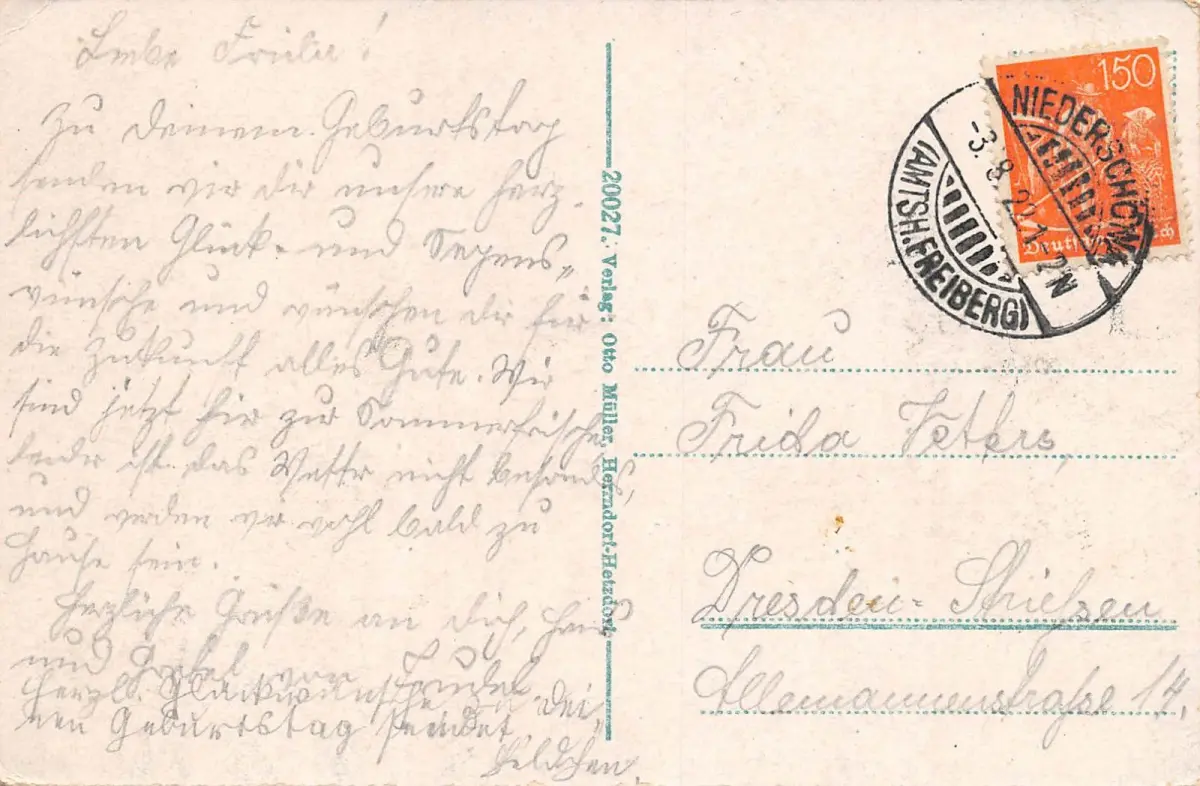 Liebe Frieda!
Zu Deinem Geburtstag
senden wir dir unsere herz-
lichsten Glück- und Segens„
wünsche und wünschen dir für
die Zukunft alles Gute. Wir
sind jetzt hir zur Sommerfrische
leider ist das Wettr nicht besonds,
und werden wir wohl bald zu
Hause sein.
Herzliche Grüße an dich, Hans
und von
Herzl. Glückwünsche Dei-
nen Geburtstag sendet
20027. Verlag: Otto Müller, Herrndorf-Hetzdorf.
150
Deutsches Reich
NIEDERSCHÖNA
-3.8.22.1-2N
(AMTSH.FREIBERG)
Frau
Frida Veters,
Dresden-Striesen
Allemannenstraße 14.